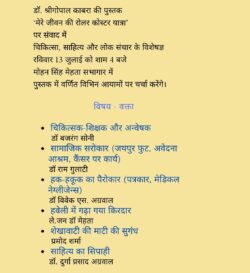 डॉ. श्रीगोपाल काबरा की पुस्तक
'मेरे जीवन की रोलर कोस्टर यात्रा'
पर संवाद में
चिकित्सा, साहित्य और लोक संचार के विशेषज्ञ
रविवार 13 जुलाई को शाम 4 बजे
मोहन सिंह मेहता सभागार में
पुस्तक में वर्णित विभिन आयामों पर चर्चा करेंगे।
विषय - वक्ता
• चिकित्सक-शिक्षक और अन्वेषक
डॉ बजरंग सोनी
• सामाजिक सरोकार (जयपुर फुट, अवेदना
आश्रम, कैंसर पर कार्य)
डॉ राम गुलाटी
• हक-हकूक का पैरोकार (पत्रकार, मेडिकल
नेग्लीजेन्स)
डॉ विवेक एस. अग्रवाल
• हवेली में गढ़ा गया किरदार
ले.जन डॉ मेहता
• शेखावाटी की माटी की सुगंध
प्रमोद शर्मा
• साहित्य का सिपाही
डॉ. दुर्गा प्रसाद अग्रवाल